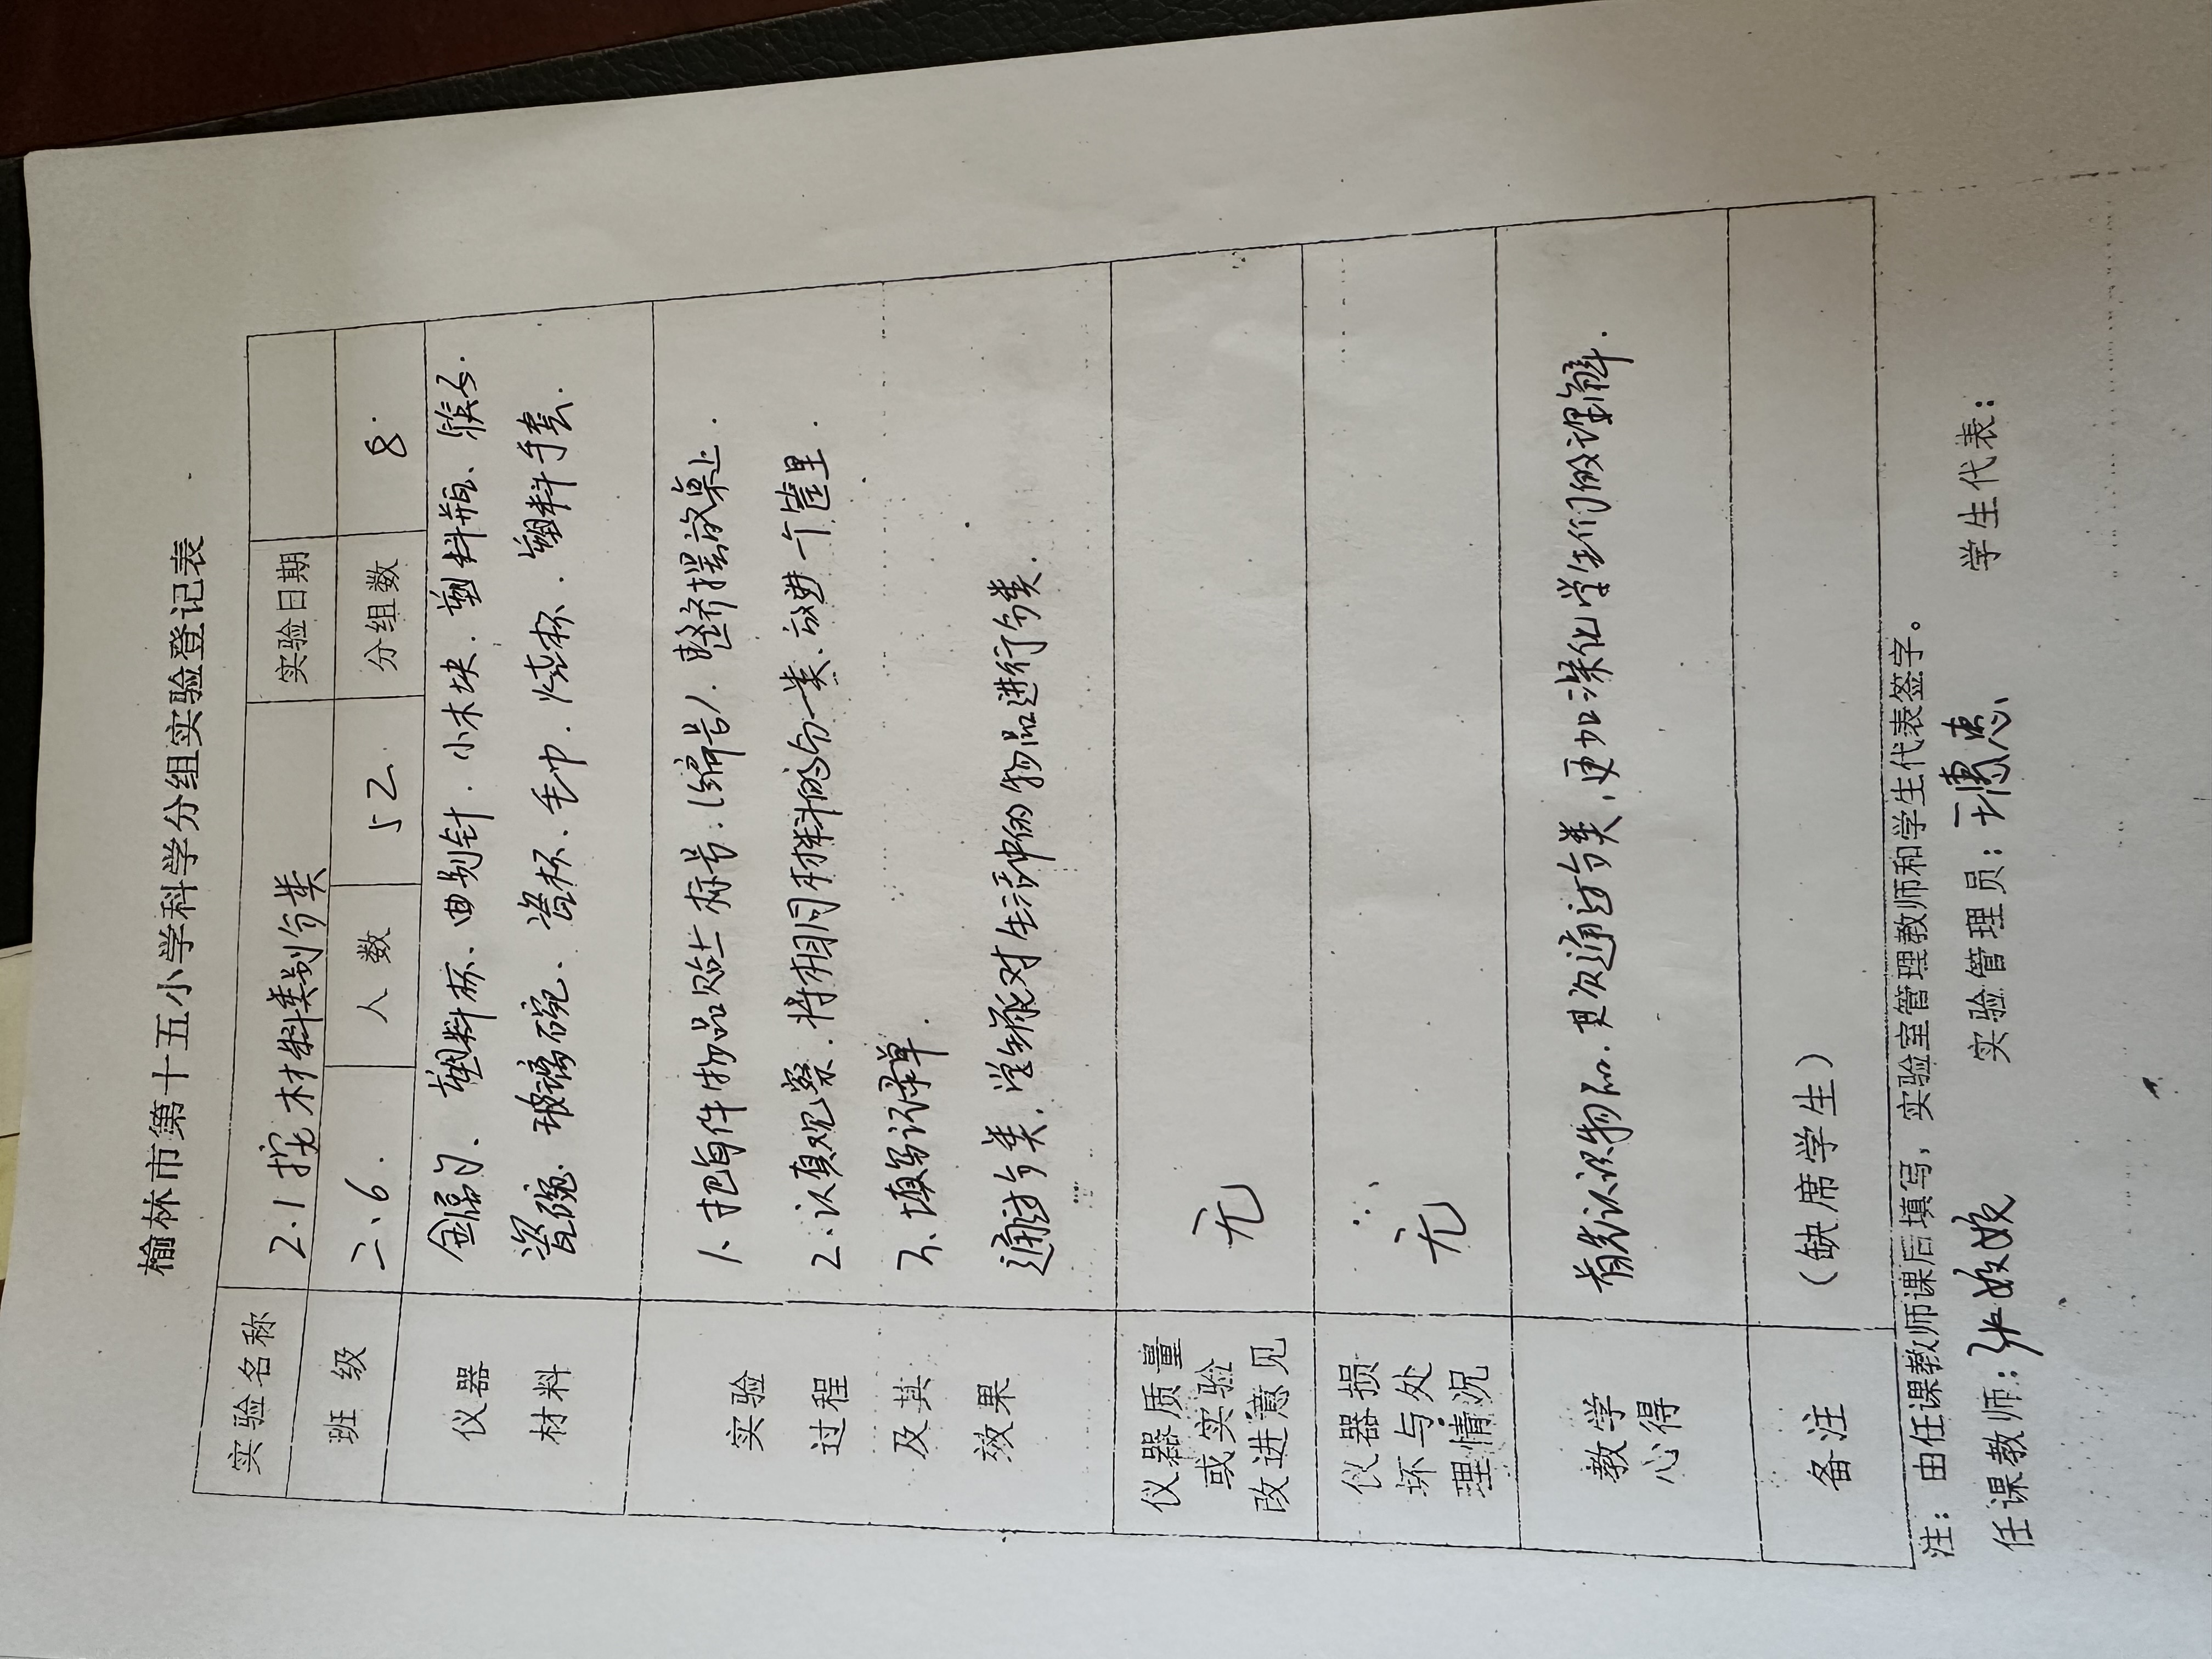 榆林市第十五小学科学分组实验登记表
实验名称 2.1 按材料类别分类 实验日期
班级 二、6. 人数 52. 分组数 8.
仪器材料
金属勺、塑料杯、曲别针.小木块.塑料瓶、
瓷碗.玻璃碗、瓷杯、毛巾.烧杯.塑料手套.
实验过程及其效果
1、把每件物品贴上标号:(编号).整齐摆放桌上.
2.认真观察.将相同材料的分一类、放进一个筐里.
3、填写记录单.
通过分类,学生能对生活中的物品进行分类.
仪器质量或实验改进意见 无
仪器损坏与处理情况 无
教学心得 首先认识物品.其次通过分类,更加深化学生们的理解.
备注 (缺席学生)
注:由任课教师课后填写,实验室管理教师和学生代表签字。
任课教师:张姣姣 实验管理员: 学生代表: